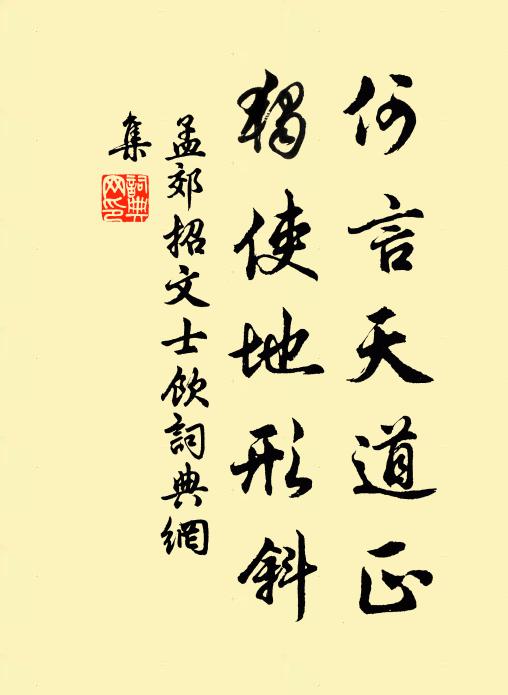 何言天道正
獨使地形斜
孟郊招文士飲詞典網
集
詞典
网印